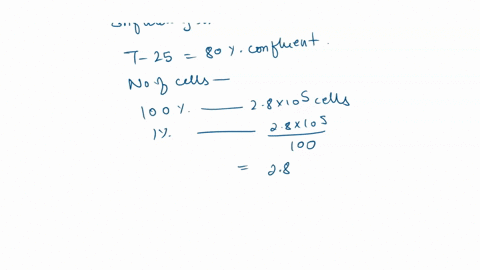 T-25 = 80%. confluent.
No of cells —
100%. —— 2.8×10⁵ cells
1%. —— 2.8×10⁵
100
= 2.8